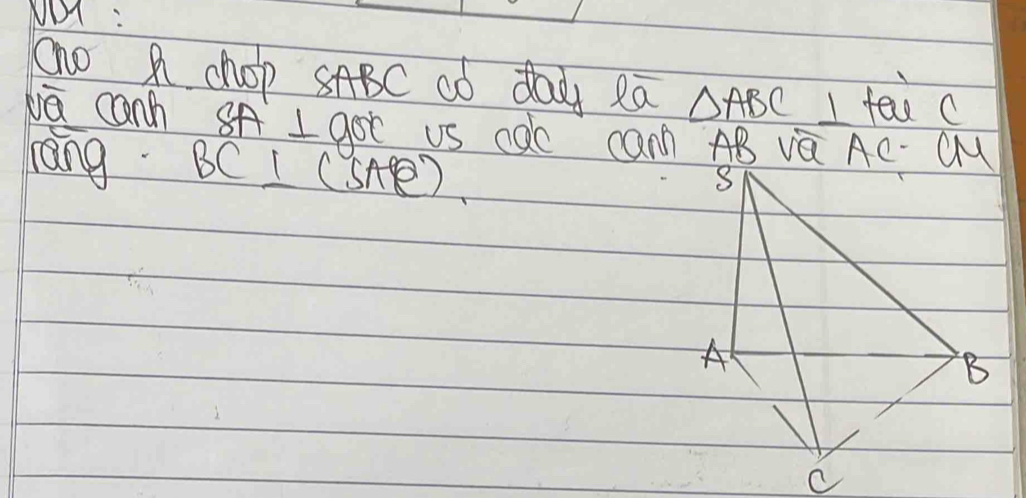 VD1 :
Cho h. chóp SABC có đáy là △ABC ⊥ tại C
và cạnh SA ⊥ góc vs các cạnh AB và AC. CM
rằng. BC ⊥ (SAC).
S
A
B
C